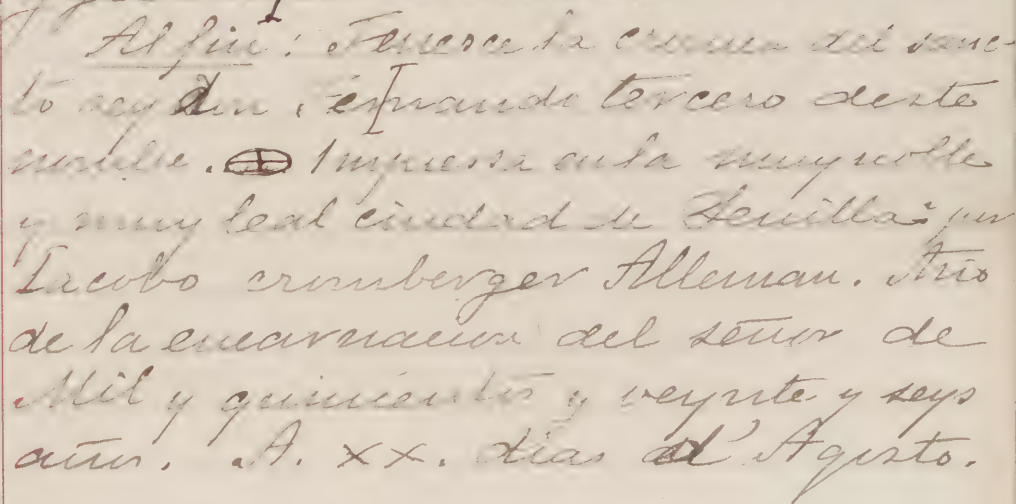 Al fin: Fenesce la cronica del sanc-
to rey don Fernando tercero deste
nombre. Impressa en la muy noble
y muy leal ciudad de Seuilla: por
Iacobo cromberger Alleman. Año
de la encarnacion del señor de
Mil y quinientos y veynte y seys
años. A. xx. dias d' Agosto.